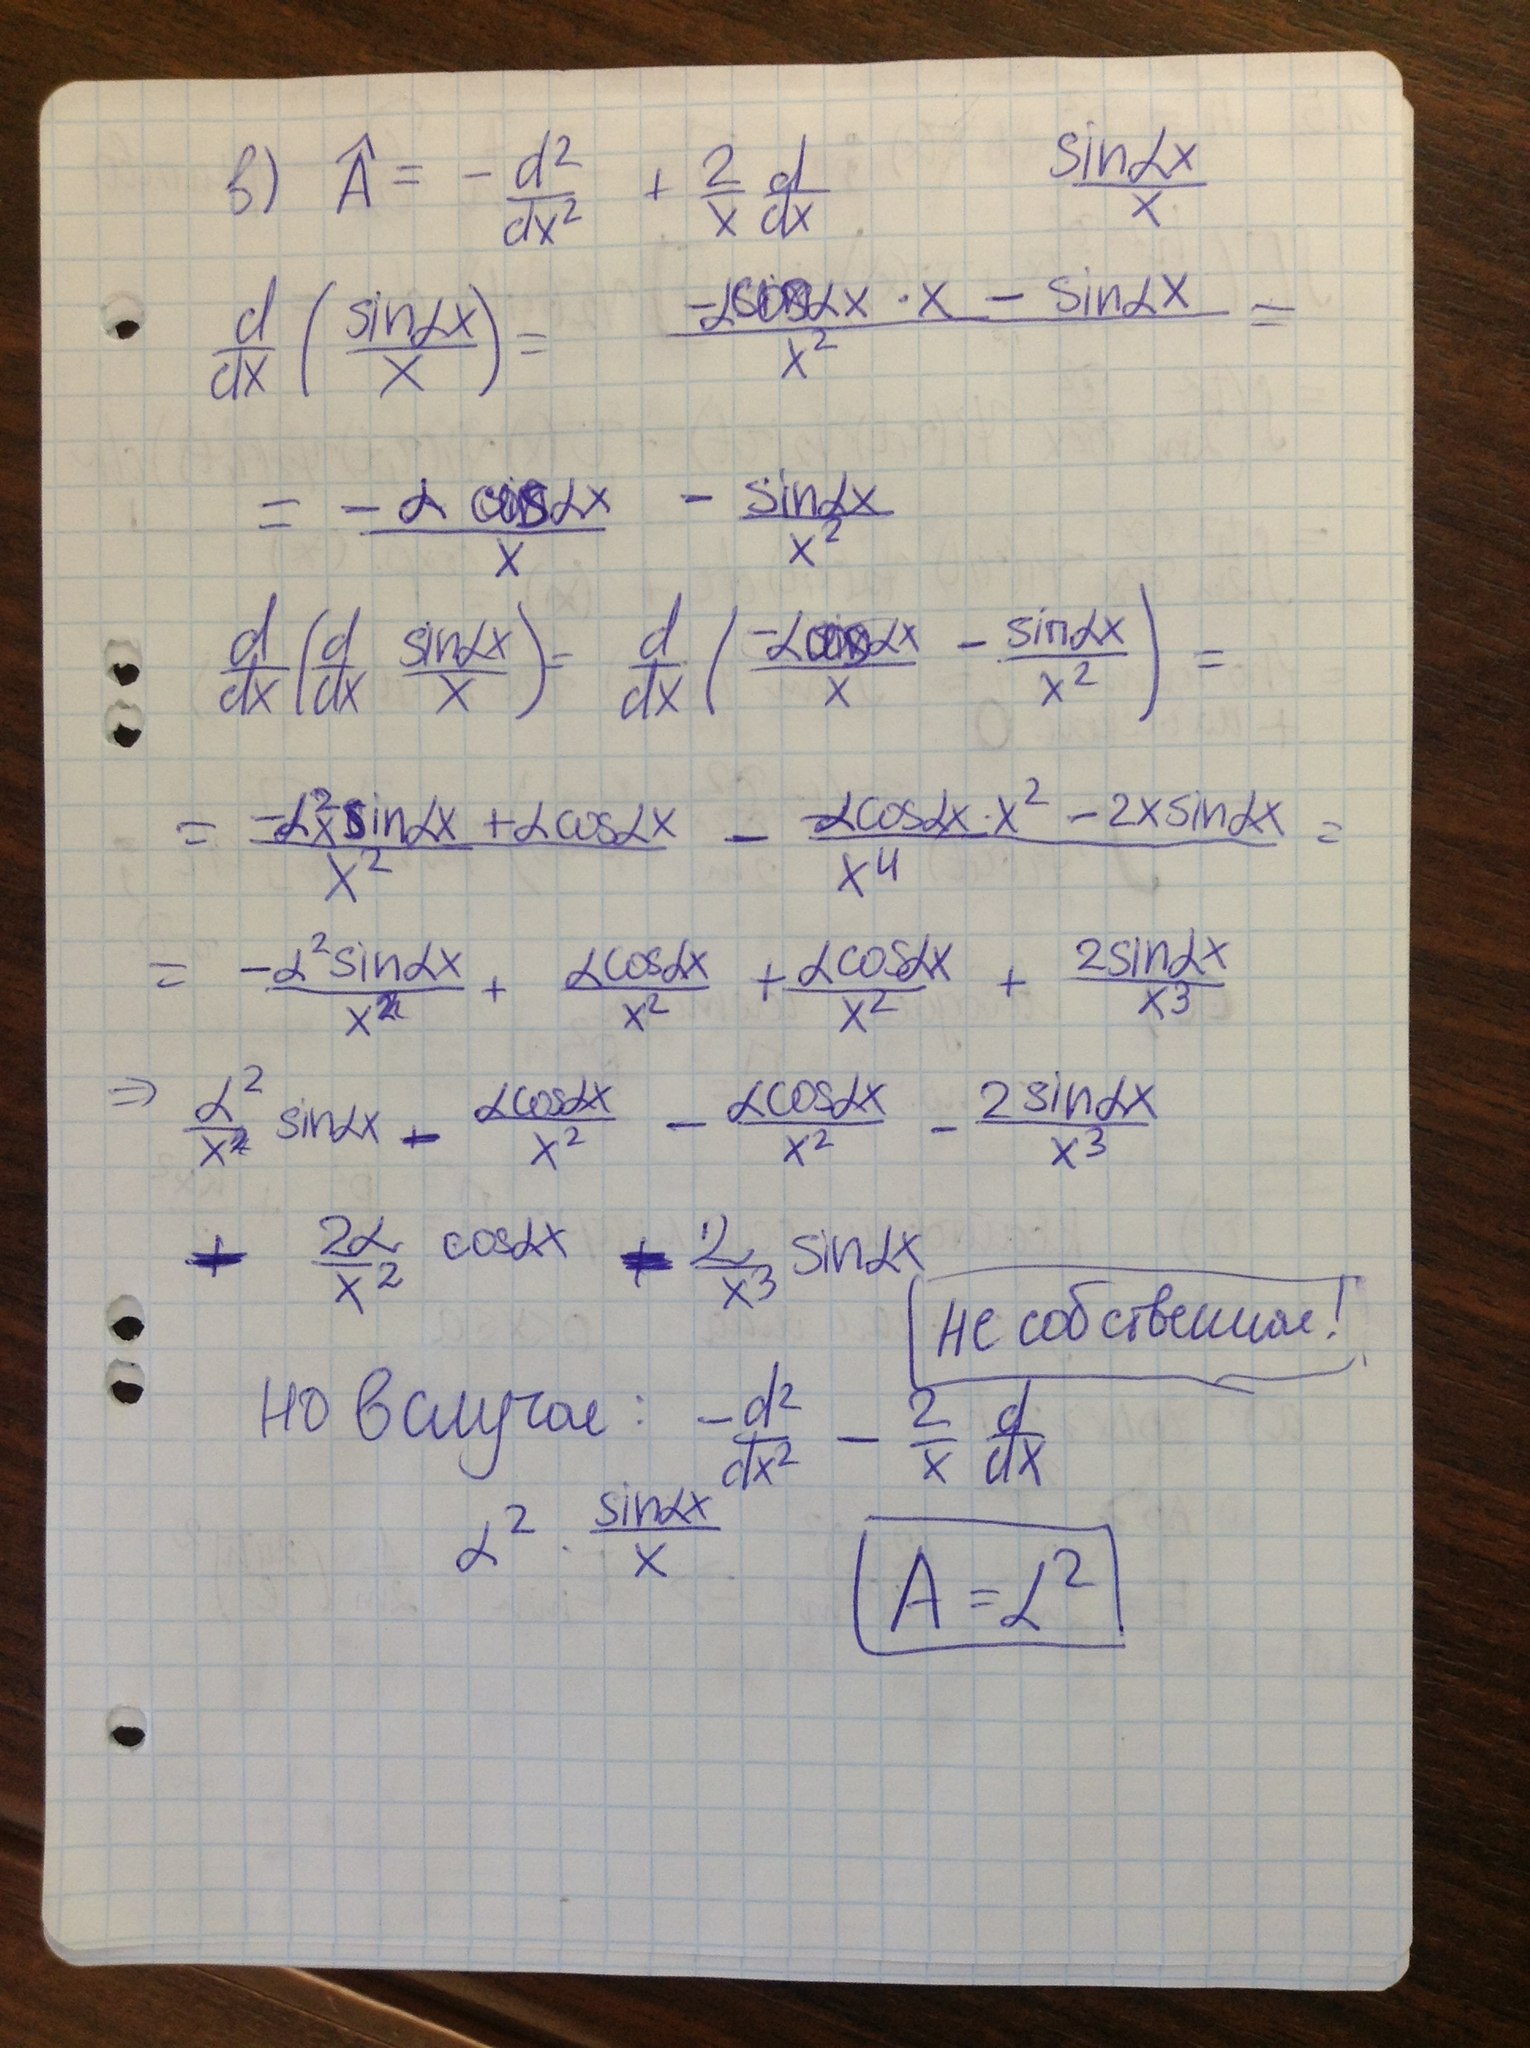 в) Â = - d²/dx² + 2/x d/dx    sinαx/x
d/dx (sinαx/x) = (-αcosαx · x - sinαx)/x² =
= -α cosαx/x - sinαx/x²
d/dx (d/dx sinαx/x) = d/dx (-αcosαx/x - sinαx/x²) =
= (-α²x sinαx + αcosαx)/x² - (-αcosαx · x² - 2x sinαx)/x⁴ =
= -α² sinαx/x + αcosαx/x² + αcosαx/x² + 2sinαx/x³
⇒ α²/x sinαx - αcosαx/x² - αcosαx/x² - 2sinαx/x³
+ 2α/x² cosαx + 2/x³ sinαx
не собственное!
но в случае: -d²/dx² - 2/x d/dx
α² · sinαx/x    A = α²